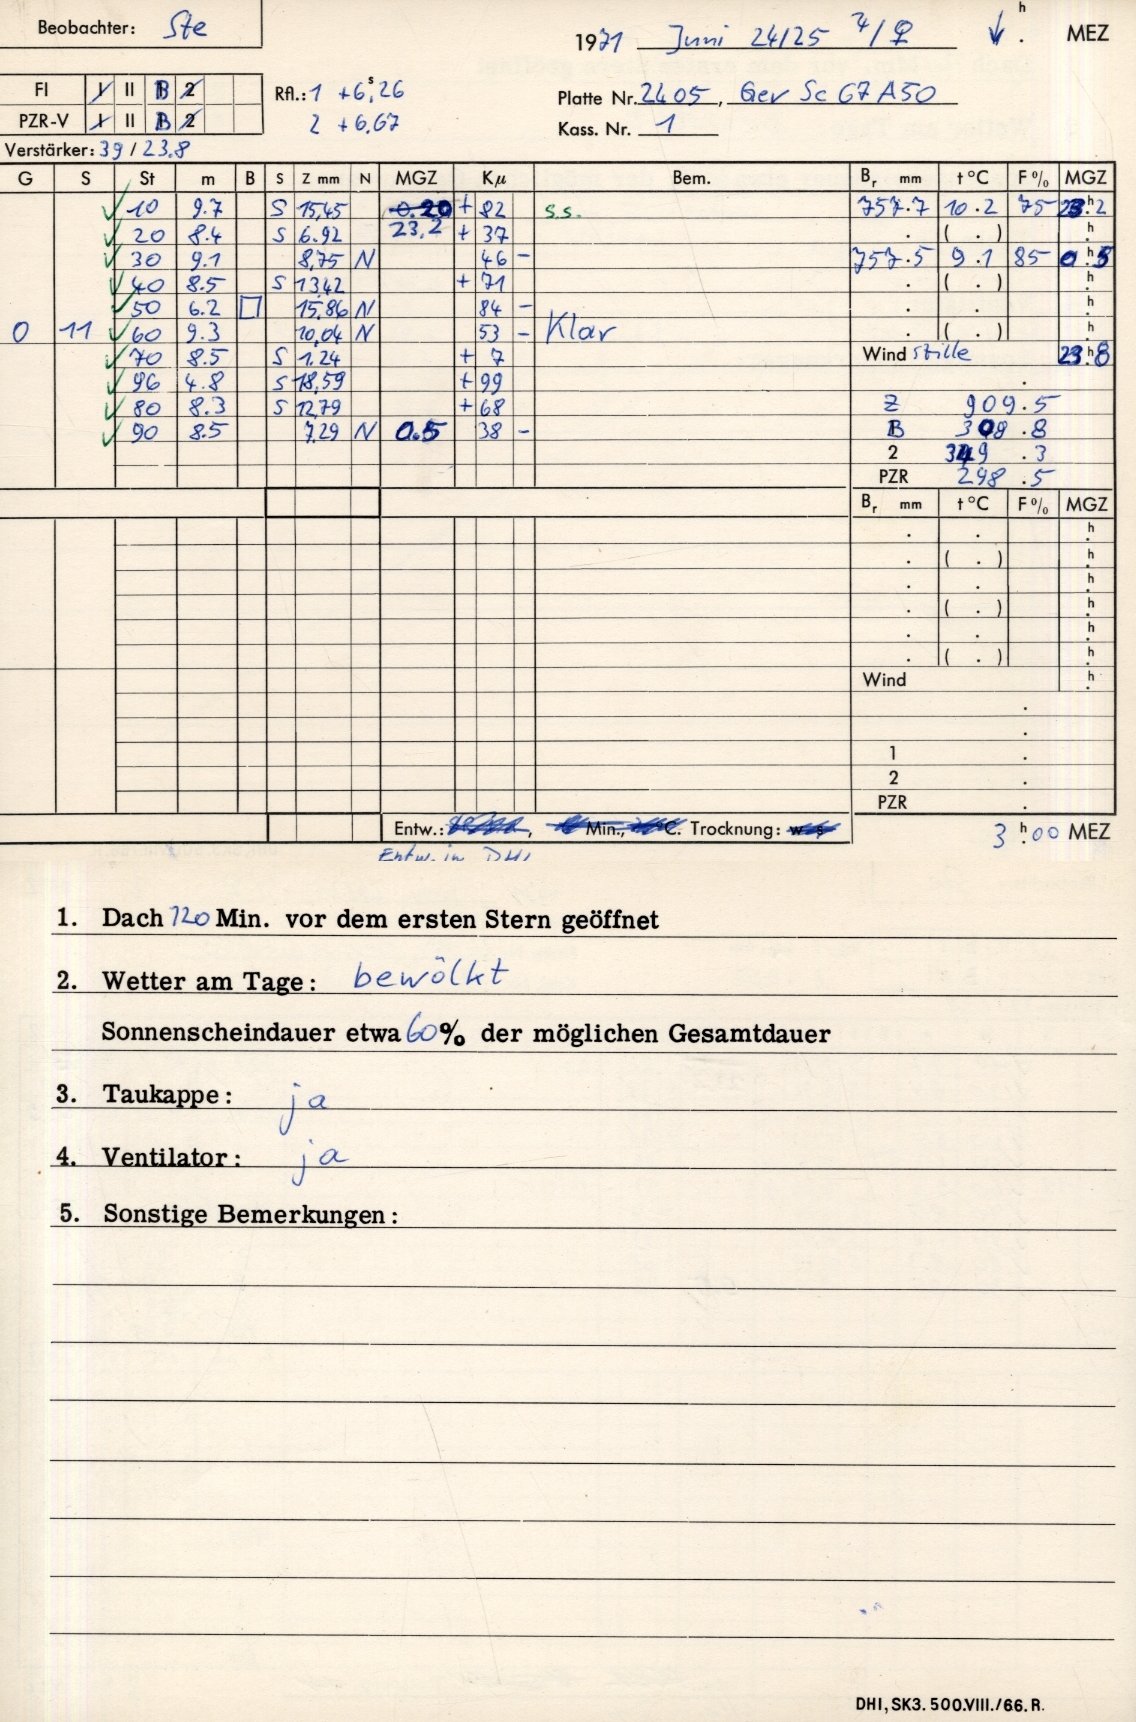 Beobachter: Ste
1971 Juni 24/25 ♃/♀ ↓ h. MEZ
FI I II B 2 Rfl.: 1 +6,s26
PZR-V I II B 2 2 +6.67
Platte Nr. 2405, Gev Sc 67 A50
Kass. Nr. 1
Verstärker: 39 / 23.8
G S St m B S Z mm N MGZ Kµ Bem. Br mm t °C F % MGZ
10 9.7 S 15,45 0.20 + 82 s.s. 757.7 10.2 75 23.h2
20 8.4 S 6.92 23,2 + 37 . ( . ) h.
30 9.1 8,75 N 46 - 757.5 9.1 85 0.h5
40 8.5 S 13,42 + 71 . ( . ) h.
50 6.2 □ 15,86 N 84 - . . h.
0 11 60 9.3 10,04 N 53 - Klar . ( . ) h.
70 8.5 S 1.24 + 7 Wind stille 23.h8
96 4.8 S 18,59 + 99 .
80 8.3 S 12,79 + 68 Z 909.5
90 8.5 7,29 N 0.5 38 - B 308.8
2 349.3
PZR 298.5
Br mm t °C F % MGZ
. . h.
. ( . ) h.
. . h.
. ( . ) h.
. . h.
. ( . ) h.
Wind h.
.
.
1 .
2 .
PZR .
Entw.: , Min., °C. Trocknung: w s 3 h.00 MEZ
Entw. in DHI
1. Dach 120 Min. vor dem ersten Stern geöffnet
2. Wetter am Tage: bewölkt
Sonnenscheindauer etwa 60% der möglichen Gesamtdauer
3. Taukappe: ja
4. Ventilator: ja
5. Sonstige Bemerkungen:
DHI, SK3. 500.VIII./66. R.